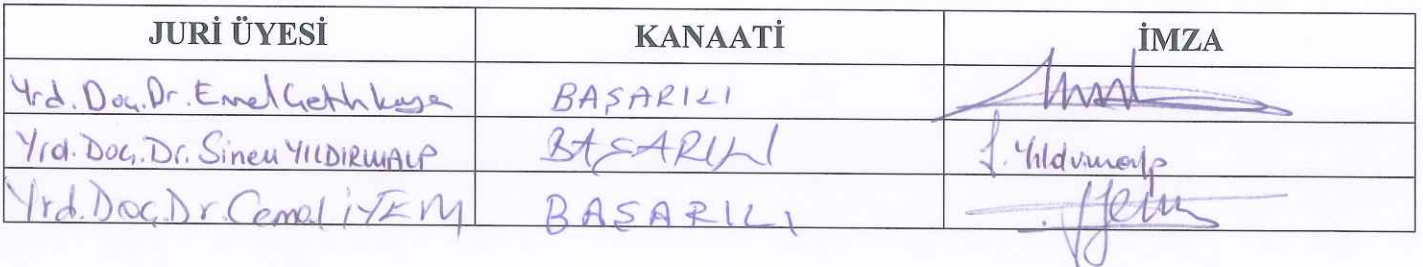 JURİ ÜYESİ KANAATİ İMZA
Yrd. Doç. Dr. Emel BAŞARILI
Yrd. Doç. Dr. Sinem YILDIRIMALP BAŞARILI S. Yıldırımalp
Yrd. Doç. Dr. Cemal İYEM BAŞARILI